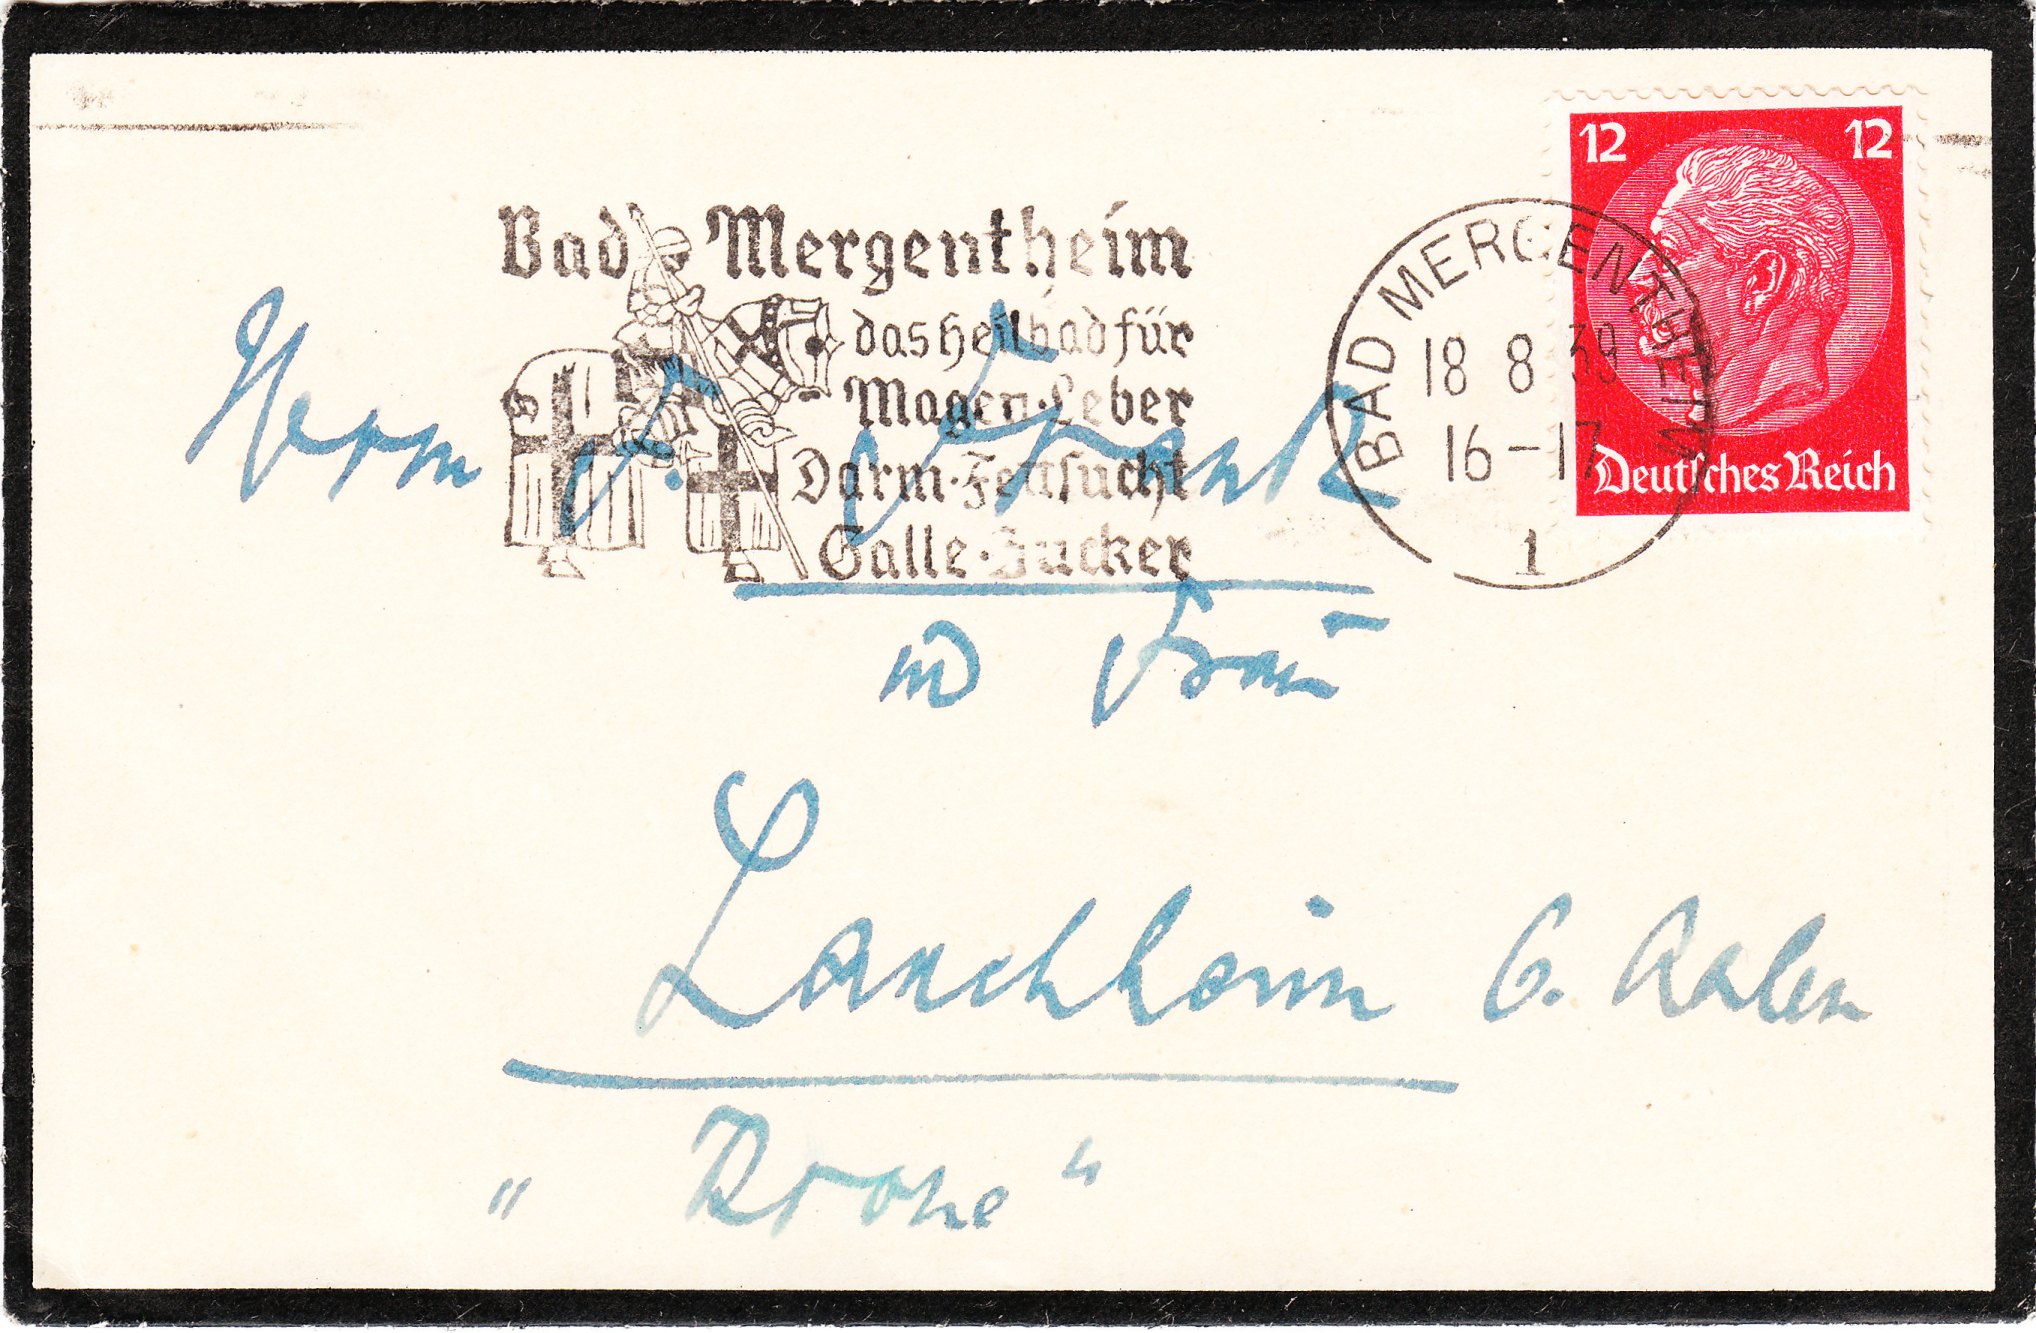 12 12
Deutsches Reich
BAD MERGENTHEIM
18 8 39
16-17
1
Bad Mergentheim
das Heilbad für
Magen·Leber
Darm·Fettsucht
Galle·Zucker
Herrn F. Frank
Frau
Lauchheim b. Aalen
"Krone"